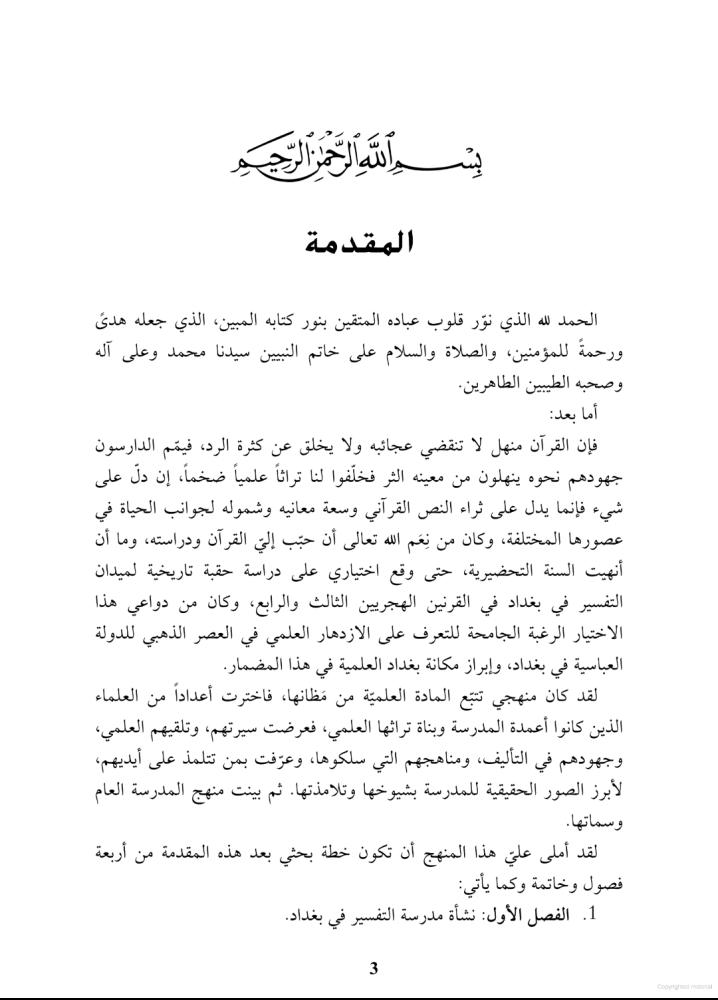 بِسْمِ اللَّهِ الرَّحْمَٰنِ الرَّحِيمِ
المقدمة
الحمد لله الذي نوّر قلوب عباده المتقين بنور كتابه المبين، الذي جعله هدىً
ورحمةً للمؤمنين، والصلاة والسلام على خاتم النبيين سيدنا محمد وعلى آله
وصحبه الطيبين الطاهرين.
أما بعد:
فإن القرآن منهل لا تنقضي عجائبه ولا يخلق عن كثرة الرد، فيمّم الدارسون
جهودهم نحوه ينهلون من معينه الثر فخلّفوا لنا تراثاً علمياً ضخماً، إن دلّ على
شيء فإنما يدل على ثراء النص القرآني وسعة معانيه وشموله لجوانب الحياة في
عصورها المختلفة، وكان من نِعَم الله تعالى أن حبّب إليّ القرآن ودراسته، وما أن
أنهيت السنة التحضيرية، حتى وقع اختياري على دراسة حقبة تاريخية لميدان
التفسير في بغداد في القرنين الهجريين الثالث والرابع، وكان من دواعي هذا
الاختيار الرغبة الجامحة للتعرف على الازدهار العلمي في العصر الذهبي للدولة
العباسية في بغداد، وإبراز مكانة بغداد العلمية في هذا المضمار.
لقد كان منهجي تتبّع المادة العلميّة من مَظانها، فاخترت أعداداً من العلماء
الذين كانوا أعمدة المدرسة وبناة تراثها العلمي، فعرضت سيرتهم، وتلقيهم العلمي،
وجهودهم في التأليف، ومناهجهم التي سلكوها، وعرّفت بمن تتلمذ على أيديهم،
لأبرز الصور الحقيقية للمدرسة بشيوخها وتلامذتها. ثم بينت منهج المدرسة العام
وسماتها.
لقد أملى عليّ هذا المنهج أن تكون خطة بحثي بعد هذه المقدمة من أربعة
فصول وخاتمة وكما يأتي:
1. الفصل الأول: نشأة مدرسة التفسير في بغداد.
3
Copyrighted material